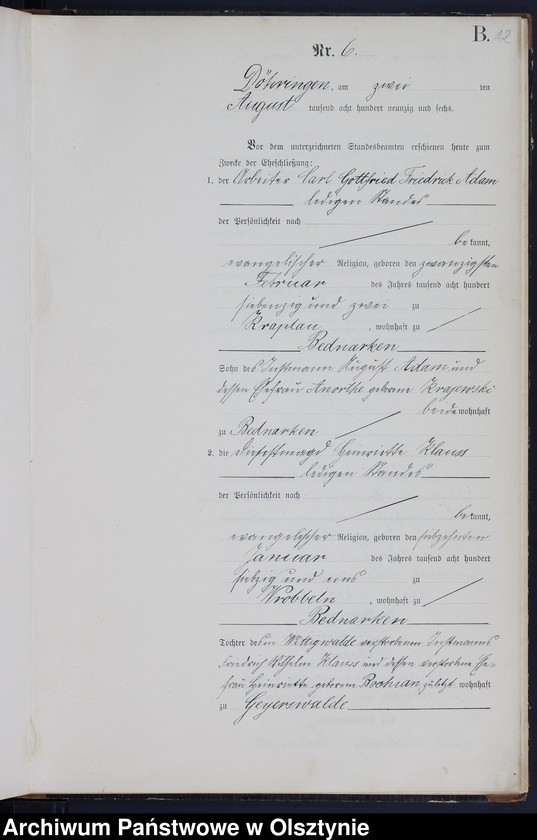 B. 12
Nr. 6.
Döhringen, am zwei ten
August tausend acht hundert neunzig und sechs.
Vor dem unterzeichneten Standesbeamten erschienen heute zum
Zwecke der Eheschließung:
1. der Arbeiter Carl Gottfried Friedrich Adam
ledigen Standes
der Persönlichkeit nach
be kannt,
evangelischer Religion, geboren den zwanzigsten
Februar des Jahres tausend acht hundert
siebenzig und zwei zu
Kraplau, wohnhaft zu
Bednarken
Sohn des Instmann August Adam und
dessen Ehefrau geborene Krajewski
beide wohnhaft
zu Bednarken
2. die Dienstmagd Heinriette Klauss
ledigen Standes
der Persönlichkeit nach
be kannt,
evangelischer Religion, geboren den siebzehnten
Januar des Jahres tausend acht hundert
siebzig und eins zu
Wrobbeln, wohnhaft zu
Bednarken
Tochter des in Wittigwalde verstorbenen Instmanns
Friedrich Wilhelm Klauss und dessen verstorbene Ehe-
frau Heinriette geborene zuletzt wohnhaft
zu Geyerswalde
Archiwum Państwowe w Olsztynie